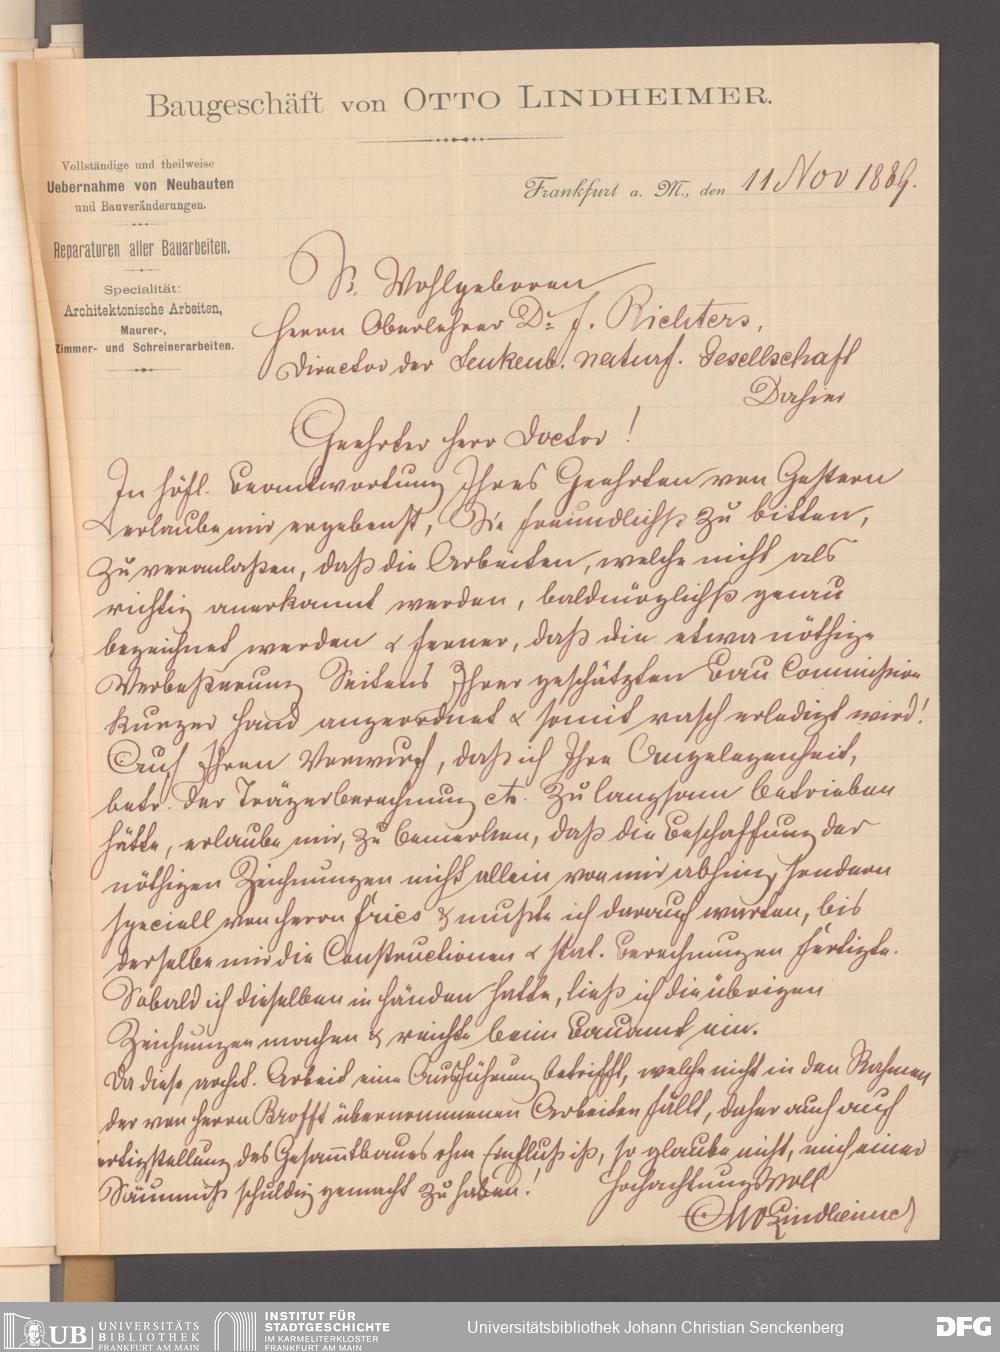 Baugeschäft von OTTO LINDHEIMER.
Vollständige und theilweise
Uebernahme von Neubauten
und Bauveränderungen.
Reparaturen aller Bauarbeiten.
Specialität:
Architektonische Arbeiten,
Maurer-,
Zimmer- und Schreinerarbeiten.
Frankfurt a. M., den 11 Nov 1889.
Sr. Wohlgeboren
Herrn Oberlehrer Dr. J. Richters,
Director der Senkenb. naturf. Gesellschaft
Dahier
Geehrter Herr Doctor!
In höfl. Beantwortung Ihres Geehrten von Gestern
erlaube mir ergebenst, Sie freundlichst zu bitten,
zu veranlaßen, daß die Arbeiten, welche nicht als
richtig anerkannt werden, baldmöglichst genau
bezeichnet werden & ferner, daß die etwa nöthige
Verbeßerung Seitens Ihrer geschätzten Bau Commission
kurzer Hand angeordnet & somit rasch erledigt wird!
Auf Ihren Vorwurf, daß ich Ihre Angelegenheit,
betr. der Trägerberechnung etc. zu langsam betrieben
hätte, erlaube mir, zu bemerken, daß die Beschaffung der
nöthigen Zeichnungen nicht allein von mir abhing, sondern
speciell von Herrn Fries & mußte ich darauf warten, bis
derselbe mir die Constructionen & stat. Berechnungen fertigte.
Sobald ich dieselben in Händen hatte, ließ ich die übrigen
Zeichnungen machen & reichte beim Bauamt ein.
Da diese archit. Arbeit eine Ausführung betrifft, welche nicht in den Rahmen
der von Herrn Brofft übernommenen Arbeiten fällt, daher auch auf
Fertigstellung des Gesammtbaues ohne Einfluß ist, so glaube nicht, mich einer
Säumniß schuldig gemacht zu haben! Hochachtungsvoll
Otto Lindheimer
UB UNIVERSITÄTS
BIBLIOTHEK
FRANKFURT AM MAIN
INSTITUT FÜR
STADTGESCHICHTE
IM KARMELITERKLOSTER
FRANKFURT AM MAIN
Universitätsbibliothek Johann Christian Senckenberg
DFG